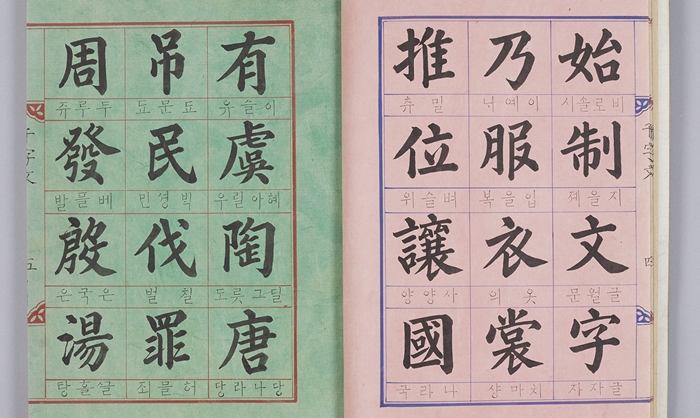 始
비로솔시
制
지을졔
文
글월문
字
글자자
乃
이여니
服
입을복
衣
옷의
裳
치마샹
推
밀츄
位
벼슬위
讓
사양양
國
나라국
四
有
이슬유
虞
혜아릴우
陶
딜그릇도
唐
당나라당
吊
民
빅셩민
伐
칠벌
罪
허물죄
周
두루쥬
發
베플발
殷
은국은
湯
글흘탕
五